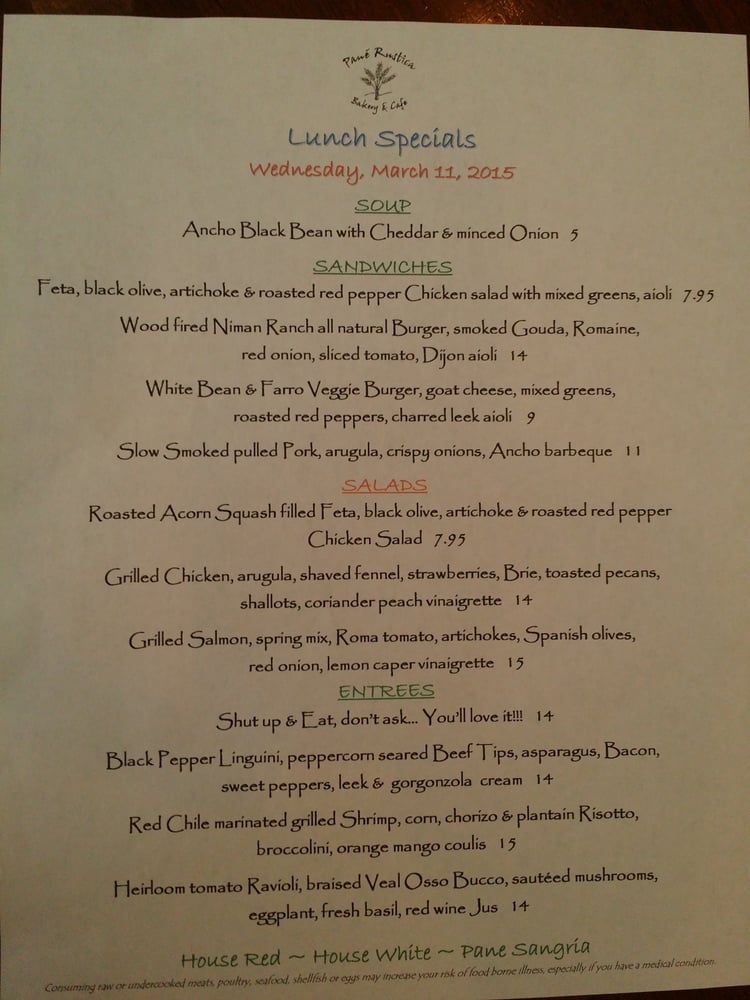 Pané Rustica
Bakery & Cafe
Lunch Specials
Wednesday, March 11, 2015
SOUP
Ancho Black Bean with Cheddar & minced Onion 5
SANDWICHES
Feta, black olive, artichoke & roasted red pepper Chicken salad with mixed greens, aioli 7.95
Wood fired Niman Ranch all natural Burger, smoked Gouda, Romaine,
red onion, sliced tomato, Dijon aioli 14
White Bean & Farro Veggie Burger, goat cheese, mixed greens,
roasted red peppers, charred leek aioli 9
Slow Smoked pulled Pork, arugula, crispy onions, Ancho barbeque 11
SALADS
Roasted Acorn Squash filled Feta, black olive, artichoke & roasted red pepper
Chicken Salad 7.95
Grilled Chicken, arugula, shaved fennel, strawberries, Brie, toasted pecans,
shallots, coriander peach vinaigrette 14
Grilled Salmon, spring mix, Roma tomato, artichokes, Spanish olives,
red onion, lemon caper vinaigrette 15
ENTREES
Shut up & Eat, don't ask... You'll love it!!! 14
Black Pepper Linguini, peppercorn seared Beef Tips, asparagus, Bacon,
sweet peppers, leek & gorgonzola cream 14
Red Chile marinated grilled Shrimp, corn, chorizo & plantain Risotto,
broccolini, orange mango coulis 15
Heirloom tomato Ravioli, braised Veal Osso Bucco, sautéed mushrooms,
eggplant, fresh basil, red wine Jus 14
House Red ~ House White ~ Pane Sangria
Consuming raw or undercooked meats, poultry, seafood, shellfish or eggs may increase your risk of food borne illness, especially if you have a medical condition.